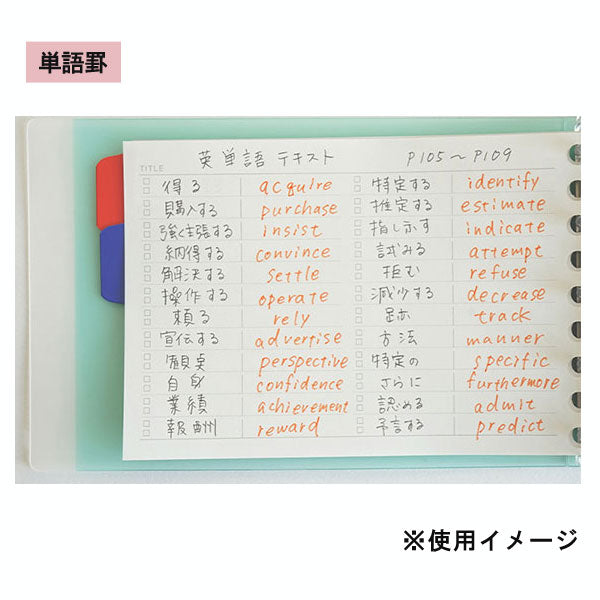 単語罫
英単語 テキスト P105～P109
TITLE
得る acquire 特定する identify
購入する purchase 推定する estimate
強く主張する insist 指し示す indicate
納得する convince 試みる attempt
解決する settle 拒む refuse
操作する operate 減少する decrease
頼る rely 跡 track
宣伝する advertise 方法 manner
観点 perspective 特定の specific
自身 confidence さらに furthermore
業績 achievement 認める admit
報酬 reward 予言する predict
※使用イメージ